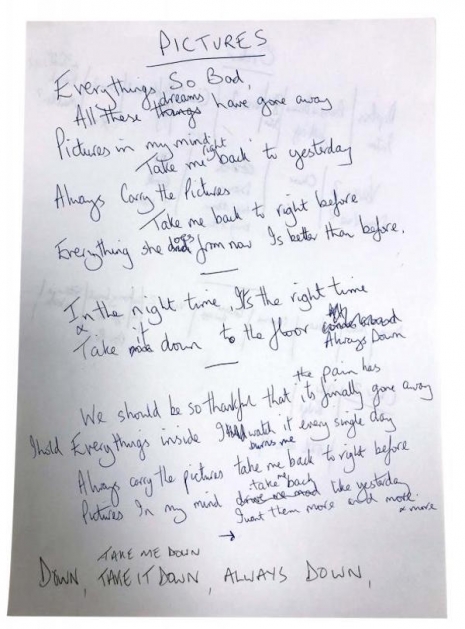 PICTURES
Everythings So Bad,
All these dreams have gone away
Pictures in my mind right
Take me back to yesterday
Always Carry the Pictures
Take me back to right before
Everything she does from now Is better than before.
In the night time, It's the right time
& Take it down to the floor
Always Down
the pain has
We should be so thankful that its finally gone away
I hold Everythings inside I watch it every single day
burns me
Always carry the pictures take me back to right before
take me back
Pictures In my mind like yesterday
I want them more and more
& more
TAKE ME DOWN
DOWN, TAKE IT DOWN, ALWAYS DOWN,